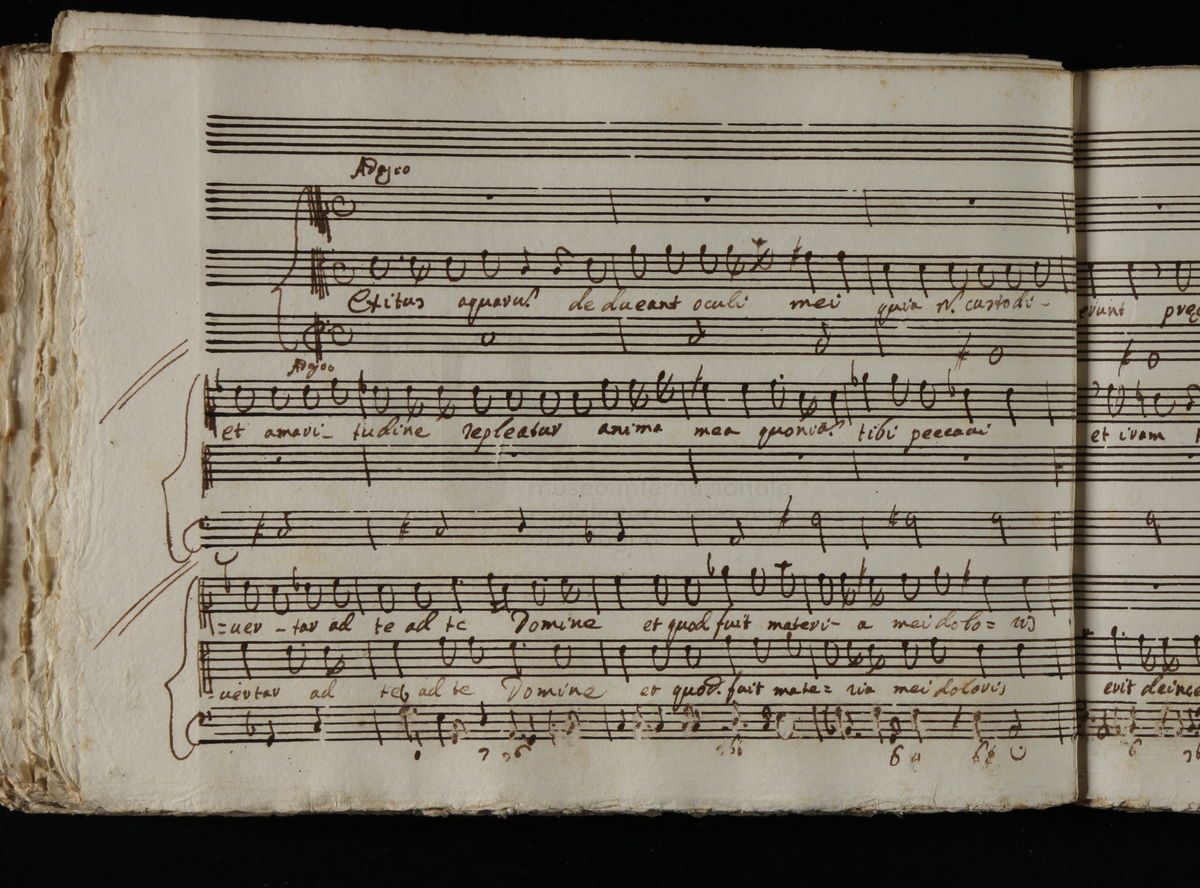 Adagio
Exitus aquaru deducant oculi mei quia N. custodi-
erunt
Adagio
et amari- tudine repleatur anima mea quonia tibi peccavi
et iram
=uer -tar ad te ad te Domine et quod fuit materi- a mei dolo= ris
-uertar ad te ad te Domine et quod. fuit mate= ria mei doloris
erit deince
7 6
6
6
museo internazionale